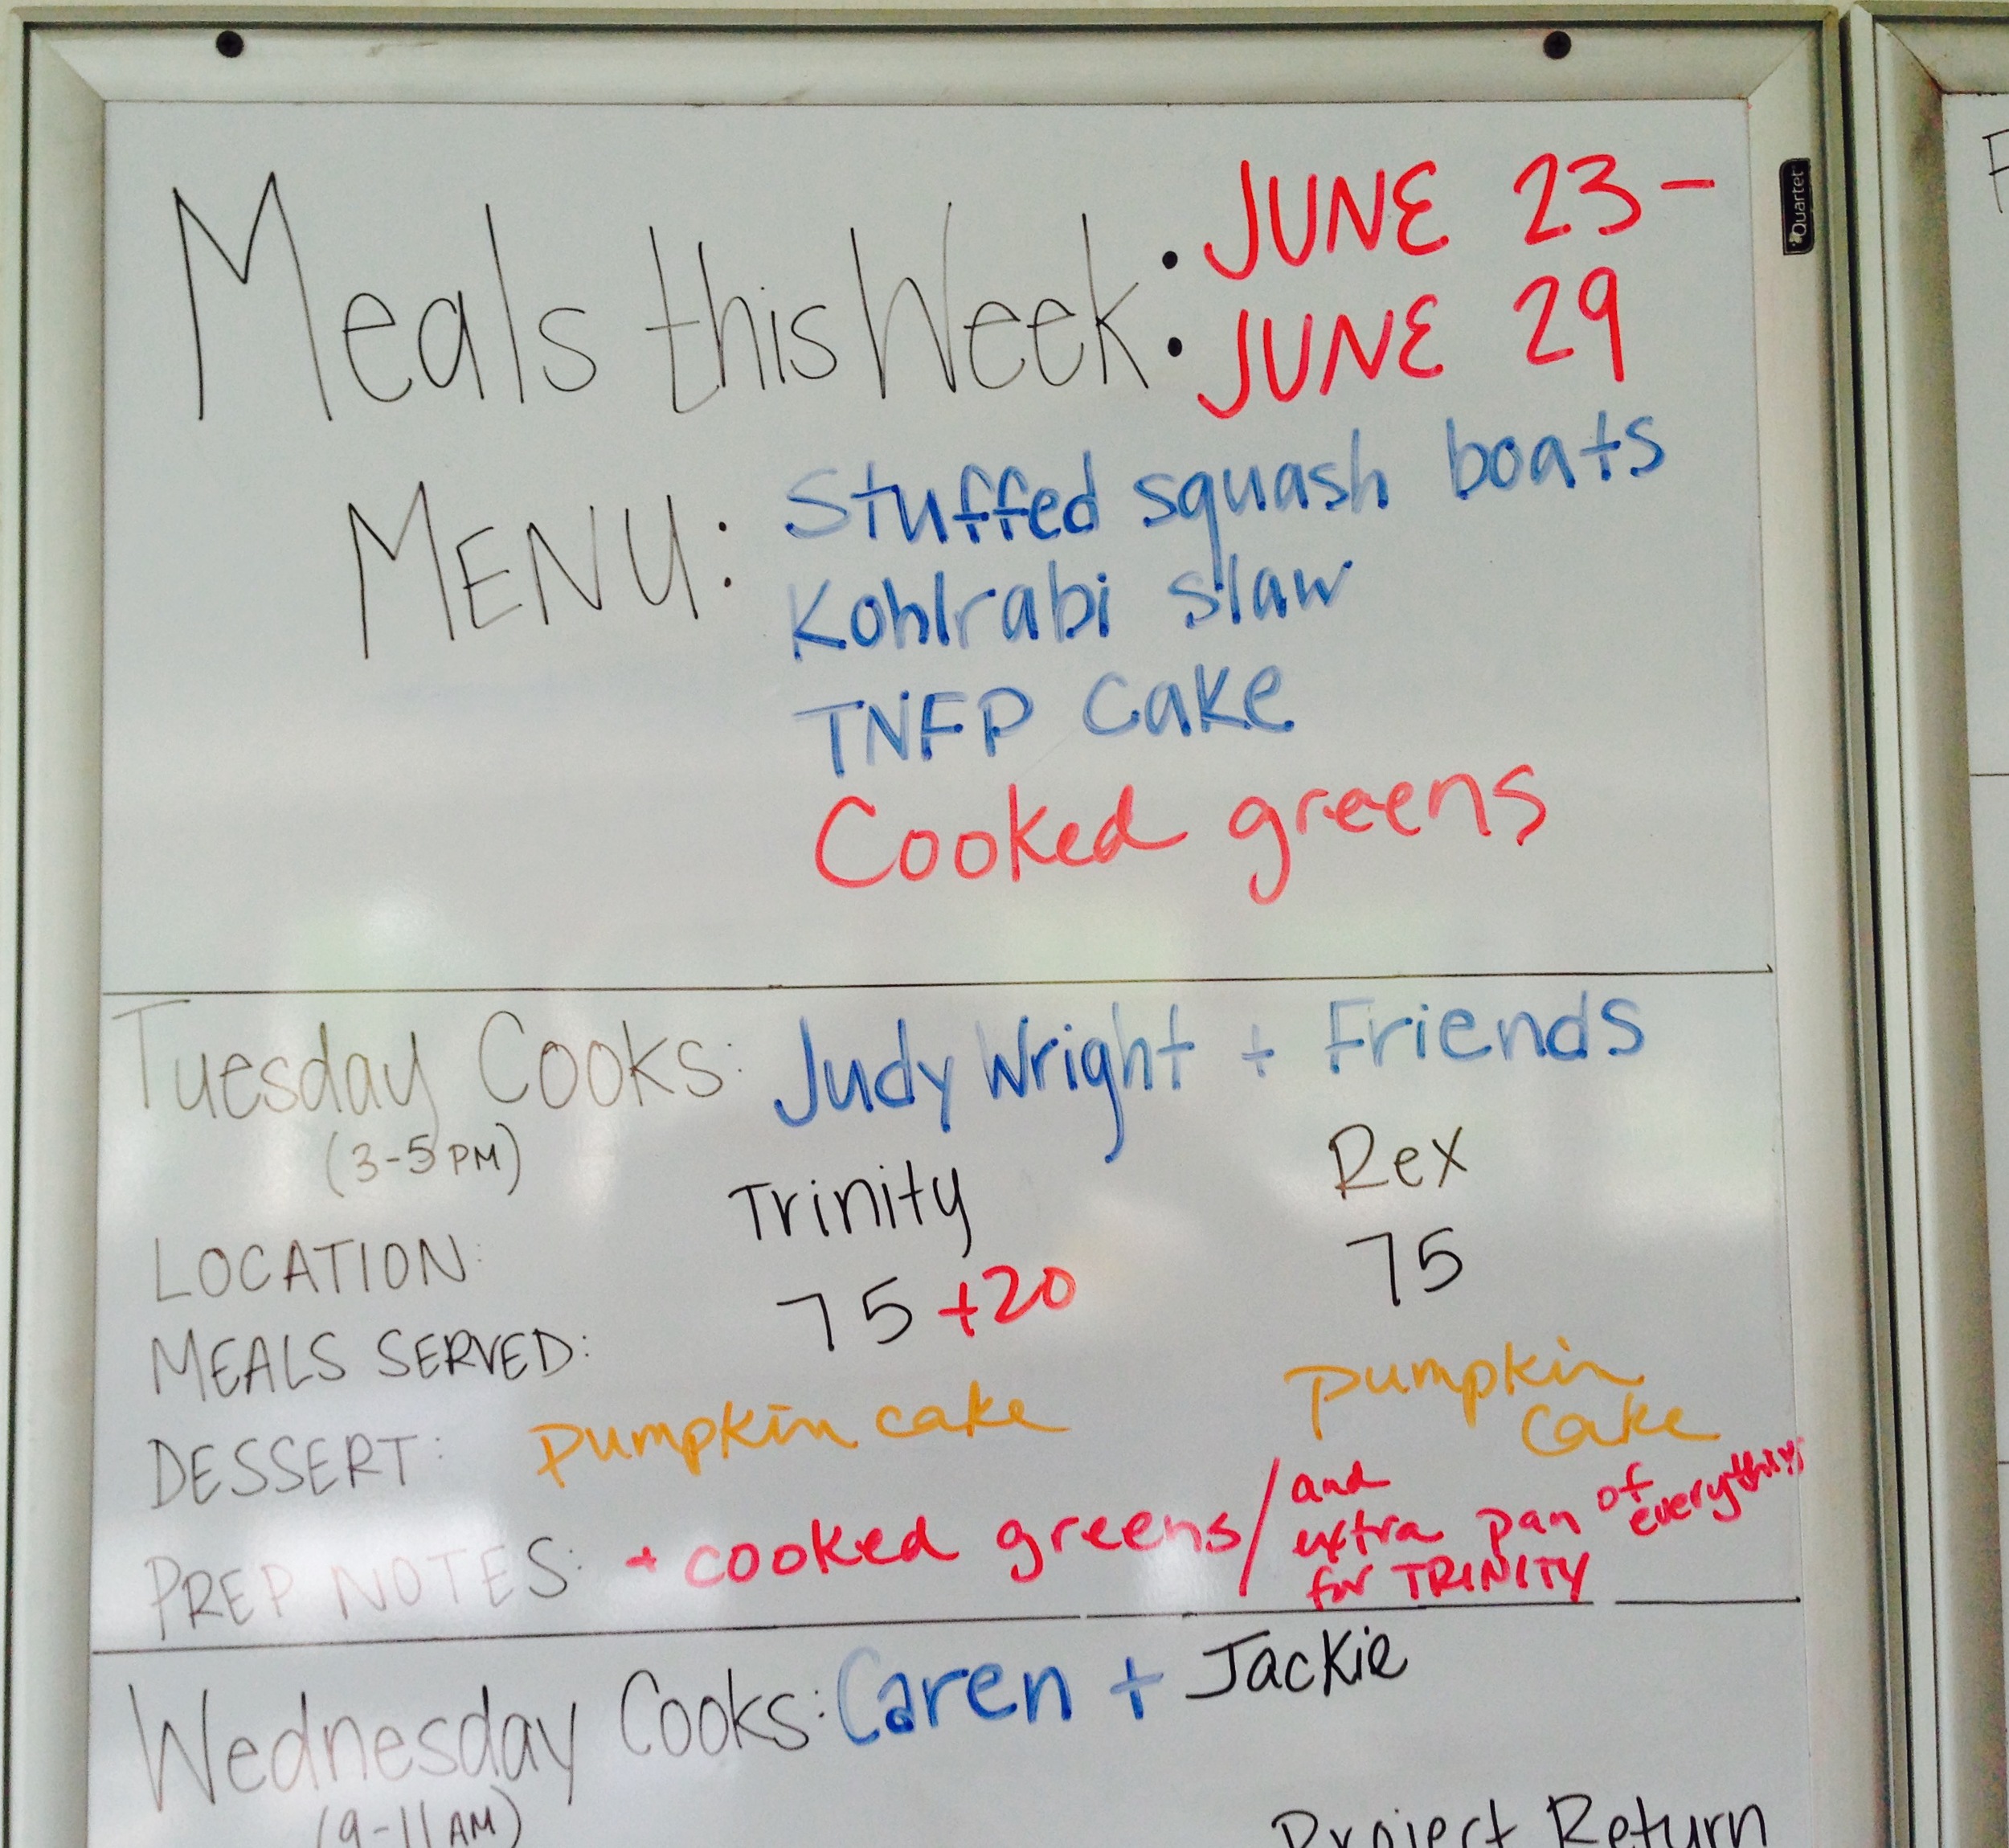 Meals this Week: JUNE 23 –
JUNE 29
MENU: Stuffed squash boats
Kohlrabi slaw
TNFP Cake
Cooked greens
Tuesday Cooks: Judy Wright + Friends
(3-5 PM)
LOCATION: Trinity Rex
MEALS SERVED: 75 +20 75
DESSERT: Pumpkin cake Pumpkin
cake
PREP NOTES: + cooked greens / and
extra pan of everything
for TRINITY
Wednesday Cooks: Caren + Jackie
(9-11 AM)
Project Return
Quartet